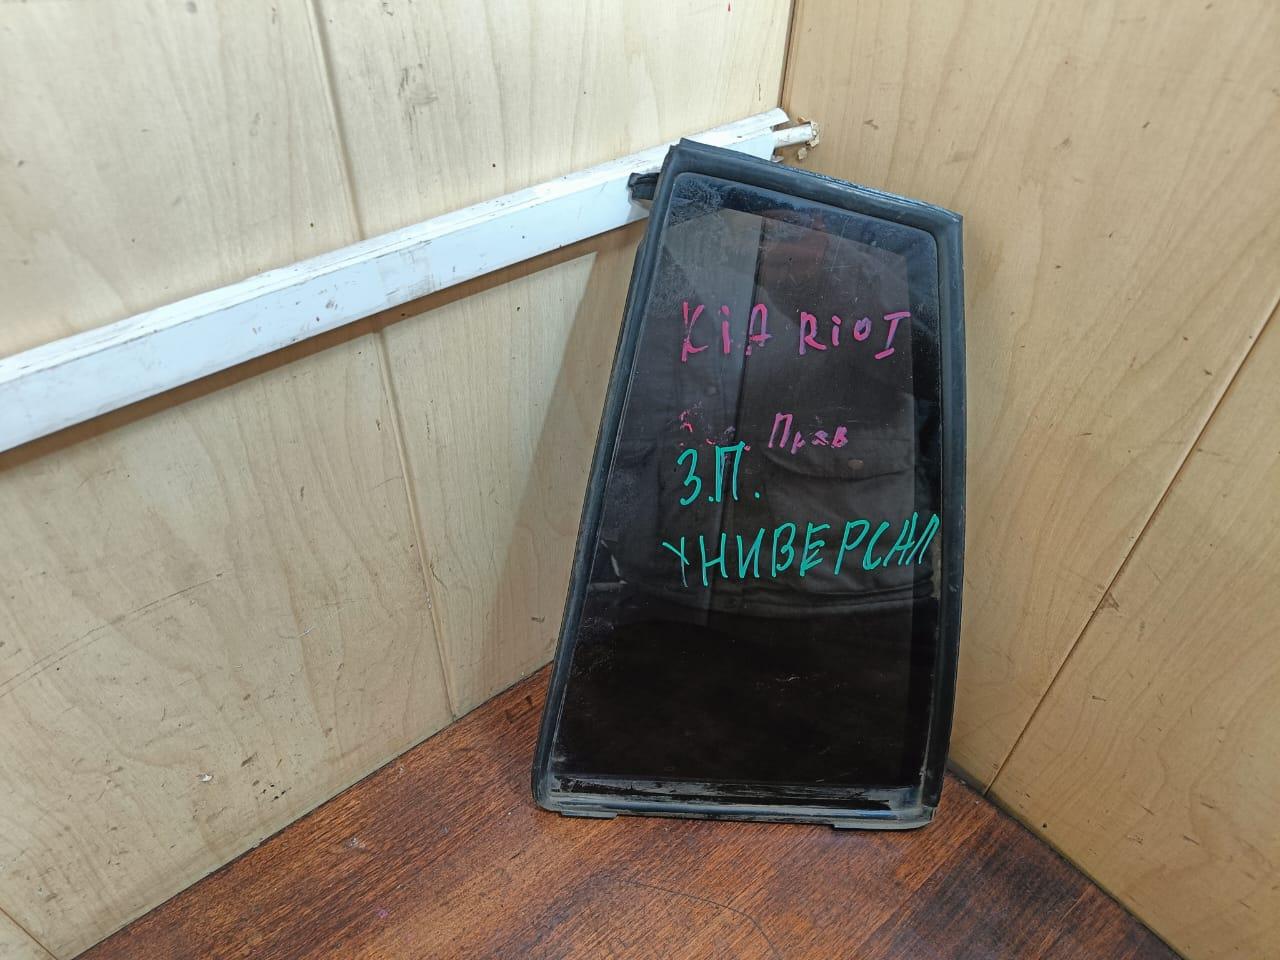 KiA RiO I
Прав
З.П.
УНИВЕРСАЛ